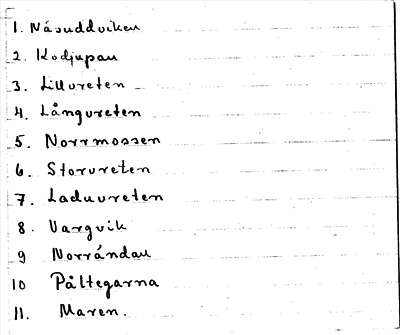 1. Násuddviken
2. Kodjupan
3. Lillvreten
4. Långvreten
5. Norrmossen
6. Storvreten
7. Laduvreten
8. Vargvik
9 Norrándan
10 Påltegarna
11. Maren.